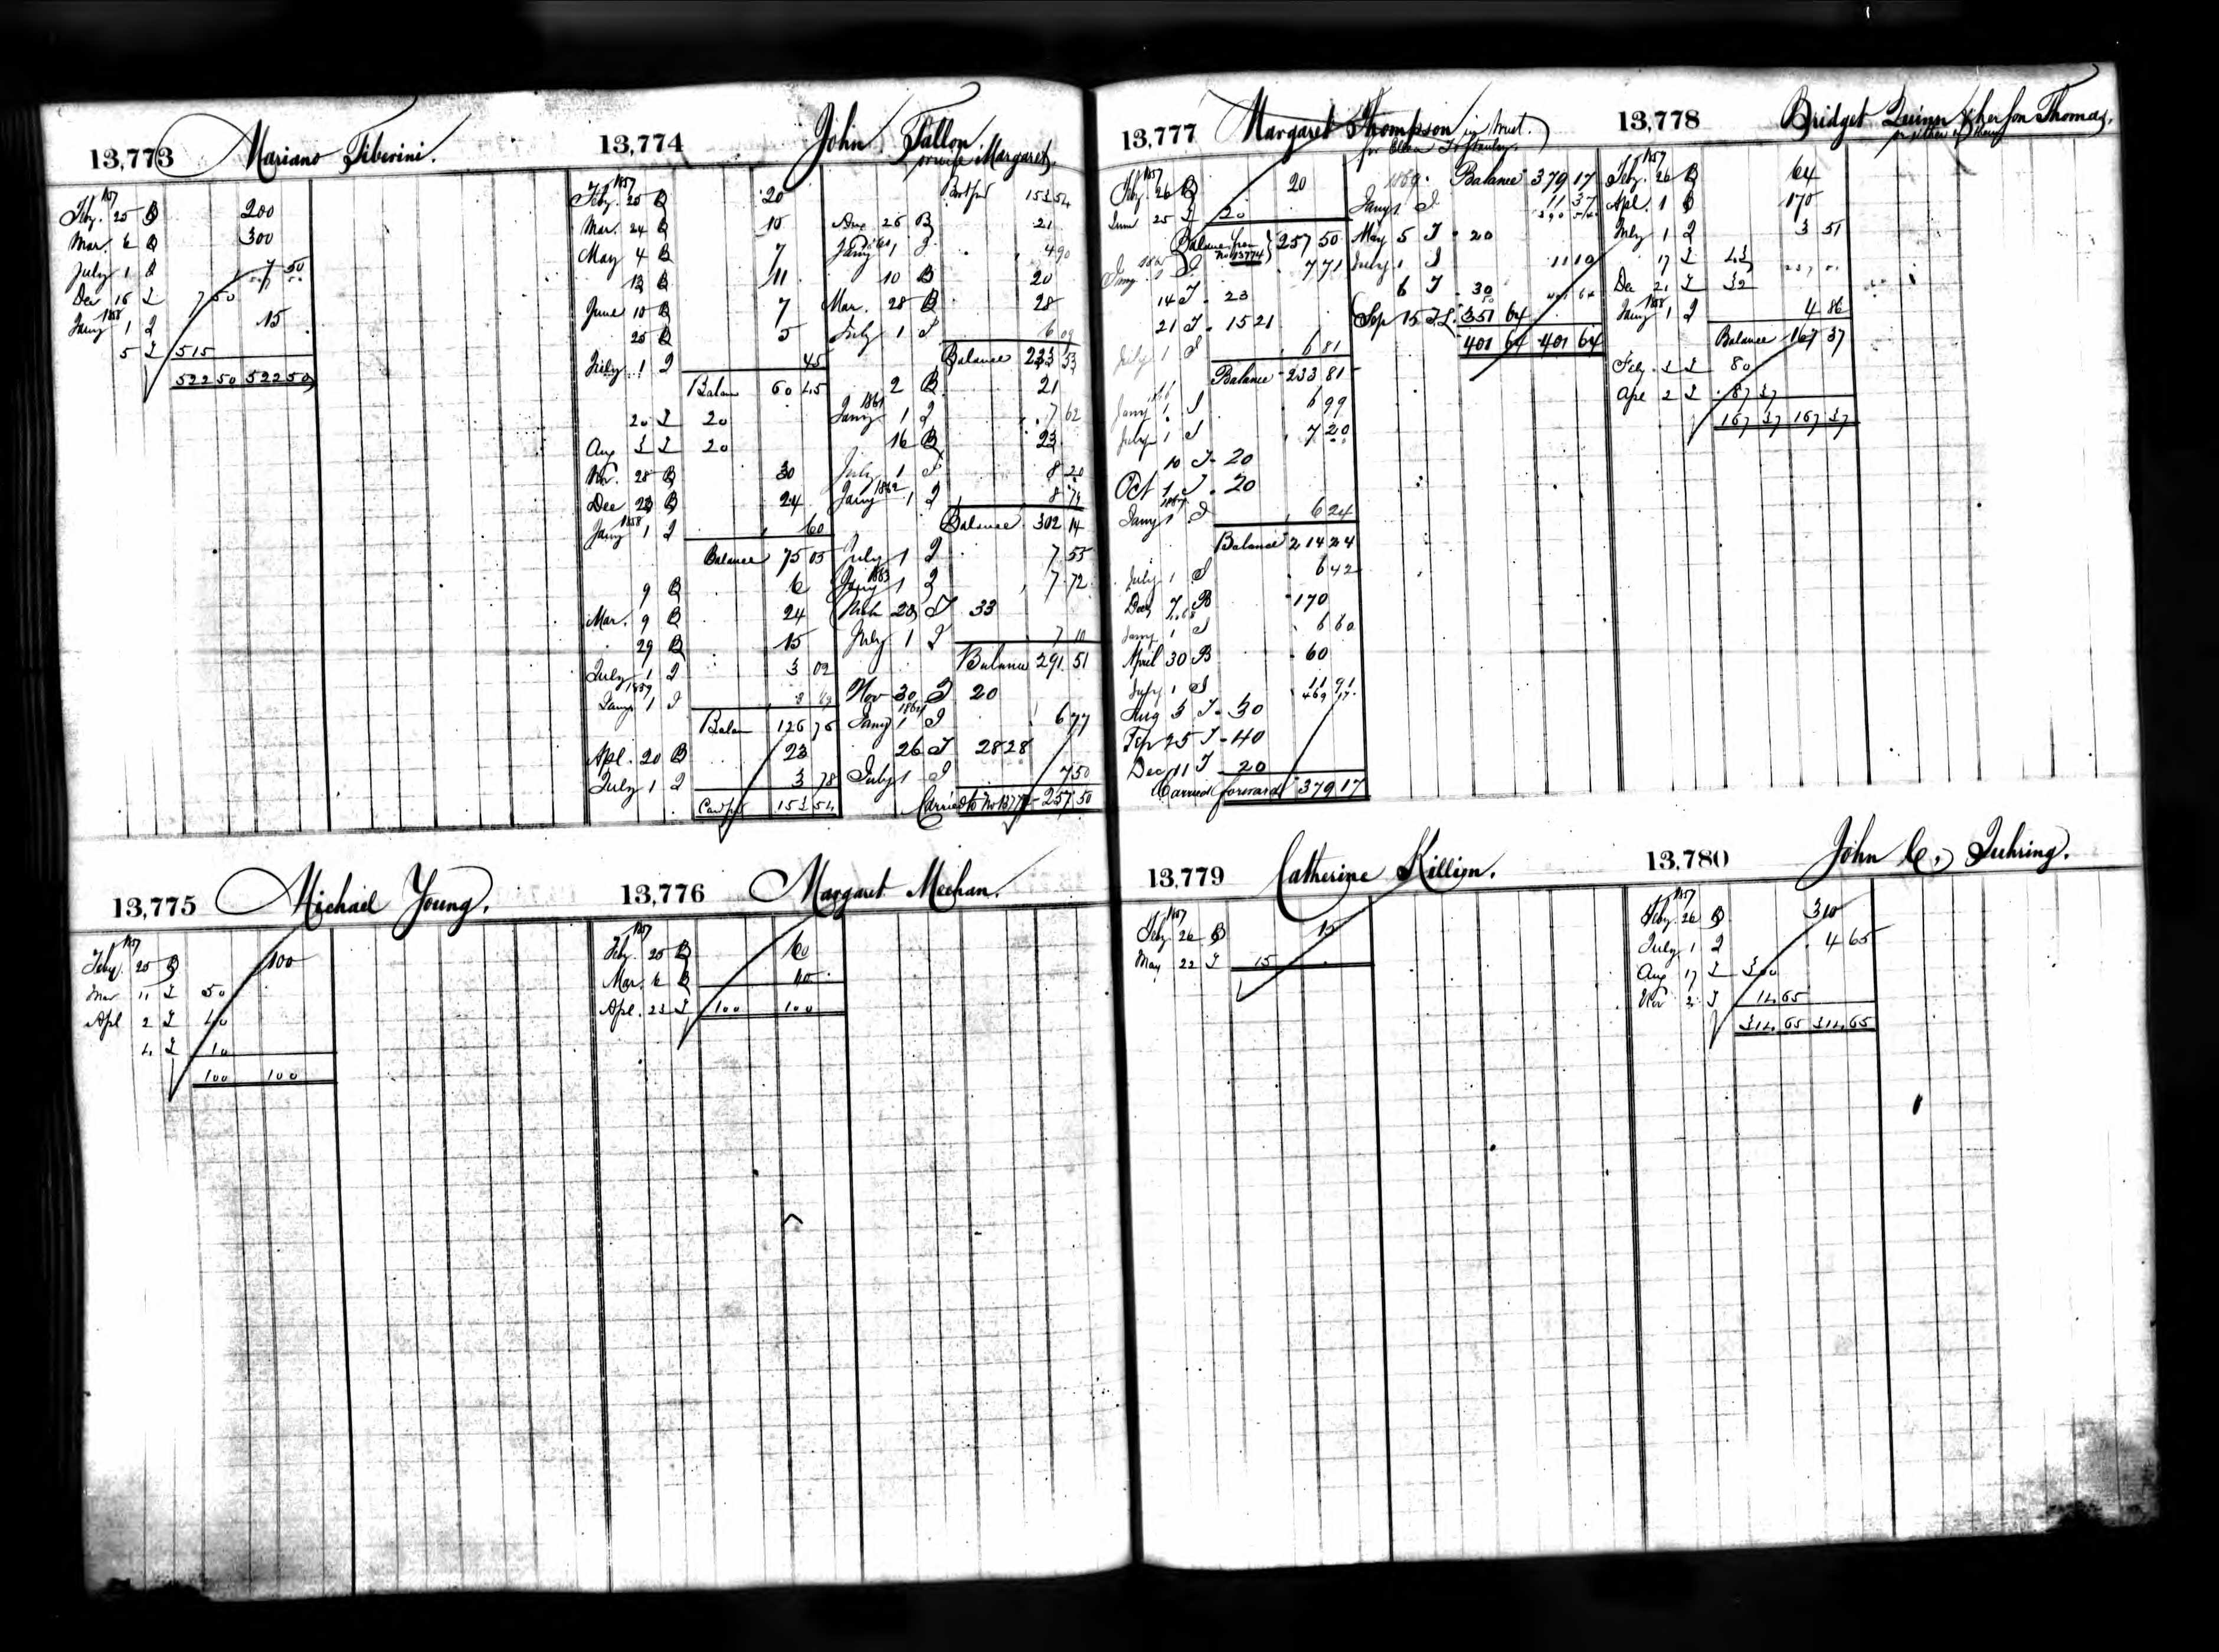 13,773 Mariano Tiberini.
1857
Feby. 25 B 200
Mar. 6 B 300
July 1 I 7 50
Dec 16 I 7 50
1858
Jany 1 I 15
5 I 515
522 50 522 50
13,774 John Fallon
or wife Margaret.
1857
Feby. 25 B 20
Mar. 24 B 10
May 4 B 7
13 B 11
June 10 B 7
25 B 5
July 1 I 45
Balan 60 45
20 I 20
Aug 3 I 20
Nov. 28 B 30
Dec 23 B 24
1858
Jany 1 I 60
Balance 75 05
9 B 6
Mar. 9 B 24
29 B 15
July 1 I 3 02
1859
Jany 1 I 3 69
Balan 126 76
Apl. 20 B 23
July 1 I 3 78
Card fd 153 54
Brot ford 153 54
Aug 26 B 21
1860
Jany 1 I 4 90
10 B 20
Mar. 28 B 28
July 1 I 6 09
Balance 233 53
2 B 21
1861
Jany 1 I 7 62
16 B 23
July 1 I 8 20
1862
Jany 1 I 8 79
Balance 302 14
July 1 I 7 55
1863
Jany 1 I 7 72
Mch 23 I 33
July 1 I 7 10
Balance 291 51
Nov 30 I 20
1864
Jany 1 I 6 77
26 I 28 28
July 1 I 7 50
Carried to No 13777 - 257 50
13,775 Michael Young.
1857
Feby. 25 B 100
Mar 11 I 50
Apl 2 I 40
4 I 10
100 100
13,776 Margaret Meehan.
1857
Feby. 25 B 60
Mar. 6 B 40
Apl. 23 I 100 100
13,777 Margaret Thompson in trust.
for Ellen
1857
Feby. 26 B 20
June 25 I 20
Balance from
No 13774 257 50
Jany 1 I 7 71
14 I - 23
21 I - 15 21
July 1 I 6 81
Balance - 233 81
1866
Jany 1 I 6 99
July 1 I 7 20
10 I - 20
Oct 1 I - 20
1867
Jany 1 I 6 24
Balance 214 24
July 1 I 6 42
Dec 7 B 170
1868
Jany 1 I 6 60
April 30 B 60
July 1 I 11 91
469 17
Aug 3 I - 30
Sep 25 I - 40
Dec 11 I 20
Carried forward 379 17
1869. Balance 379 17
Jany 1 I 11 37
390 54
May 5 I - 20
July 1 I 11 10
6 I - 30
401 64
Sep 15 I 351 64
401 64 401 64
13,778 Bridget Quinn & her son Thomas,
or either of them
1857
Feby. 26 B 64
Apl. 1 B 170
July 1 I 3 51
17 I 43
Dec 21 I 32
1858
Jany 1 I 4 86
Balance 167 37
Feby. 3 I 80
Apl 2 I 87 37
167 37 167 37
13,779 Catherine Killion.
1857
Feby 26 B 15
May 22 I 15
13,780 John C. Juhring.
1857
Feby. 26 B 310
July 1 I 4 65
Aug 17 I 300
Nov 2 I 14 65
314 65 314 65